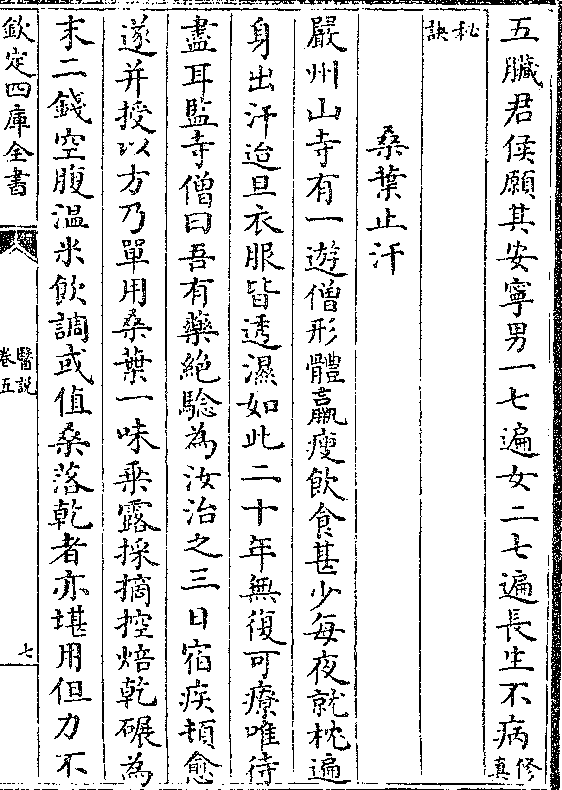 五臓君侯願其安寧男一七遍女二七遍長生不病修真
秘訣
桑葉止汗
嚴州山寺有一遊僧形體羸瘦飲食甚少每夜就枕遍
身出汗迨旦衣服皆透濕如此二十年無復可療唯待
盡耳監寺僧曰吾有藥絶驗為汝治之三日宿疾頓愈
遂并授以方乃單用桑葉一味乘露採摘控焙乾碾為
末二錢空腹温米飲調或值桑落乾者亦堪用但力不
欽定四庫全書
醫説
卷五
七